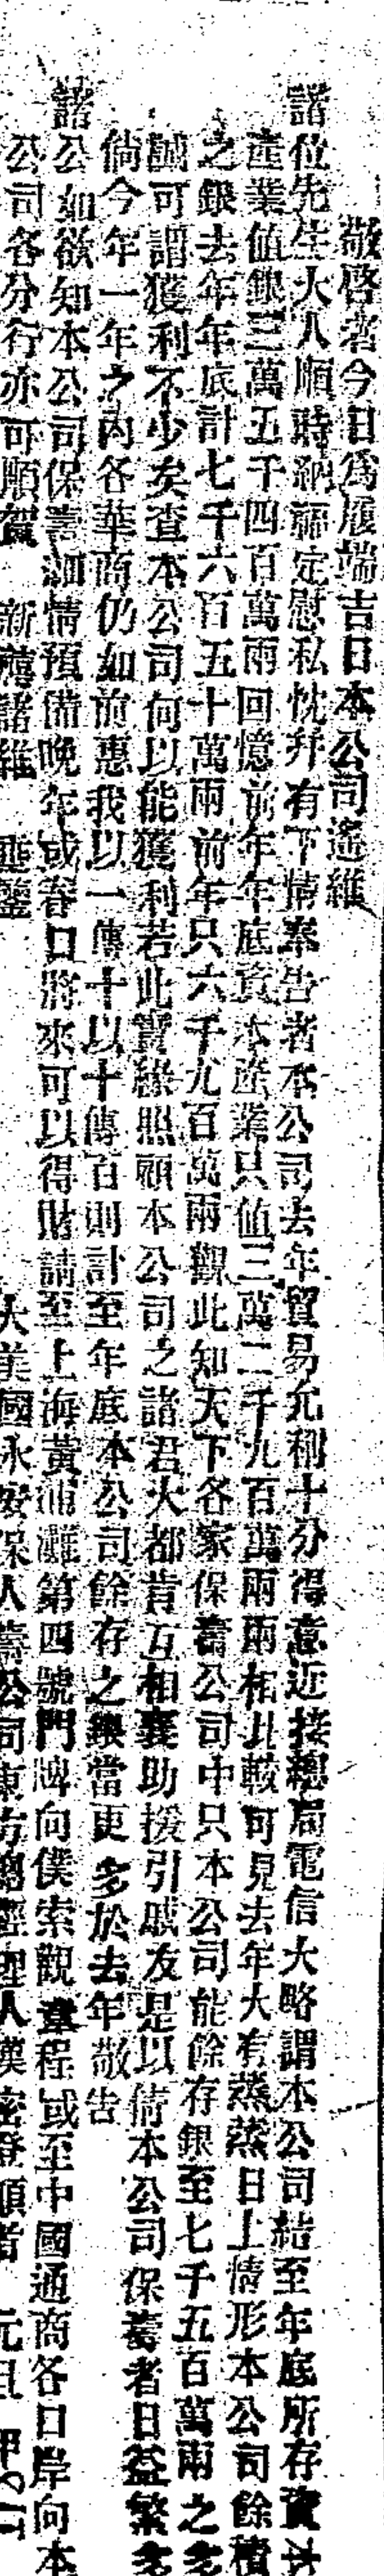 敬啓者今日爲履端吉日本公司遙維
諸位先生大人順時納福定慰私忱幷有下情奉告者本公司去年貿易允稱十分得意近接總局電信大略謂本公司結至年底所存資本
產業值銀三萬五千四百萬兩回憶前年年底資本產業只值三萬二千九百萬兩兩相比較可見去年大有蒸蒸日上情形本公司餘積
之銀去年年底計七千六百五十萬兩前年只六千九百萬兩觀此知天下各家保壽公司中只本公司能餘存銀至七千五百萬兩之多
誠可謂獲利不少矣查本公司何以能獲利若此實緣照顧本公司之諸君大都肯互相襄助援引戚友是以倚本公司保壽者日益繁多
倘今年一年之內各華商仍如前惠我以一傳十以十傳百則計至年底本公司餘存之銀當更多於去年敬告
諸公如欲知本公司保壽細情預備晚年或眷口將來可以得財請至上海黃浦灘第四號門牌向僕索觀章程或至中國通商各口岸向本
公司各分行亦可順賀 新禧諸維 垂鑒 大美國永安保人壽公司東方總經理人漢密登頓首 元旦